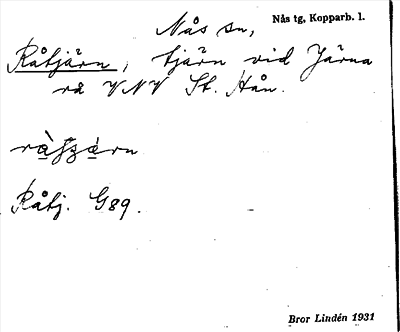 Nås sn, Nås tg, Kopparb. l.
Råtjärn, tjärn vid Järna
rå VNV St. Hån.
Råtj. G89.
Bror Lindén 1931